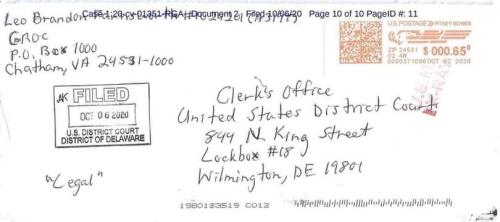 Leo Brandon
Case 1:20-cv-01351 Document 2 Filed 10/06/20 Page 10 of 10 PageID #: 11
GROC
P.O. Box 1000
Chatham, VA 24531-1000
U.S. POSTAGE PITNEY BOWES
ZIP 24531
02 4W
$ 000.65⁰
0000371086 OCT 02 2020
FILED
OCT 06 2020
U.S. DISTRICT COURT
DISTRICT OF DELAWARE
Clerk's Office
United States District Court
844 N. King Street
Lockbox #18
Wilmington, DE 19801
"Legal"
19801$3519 C012